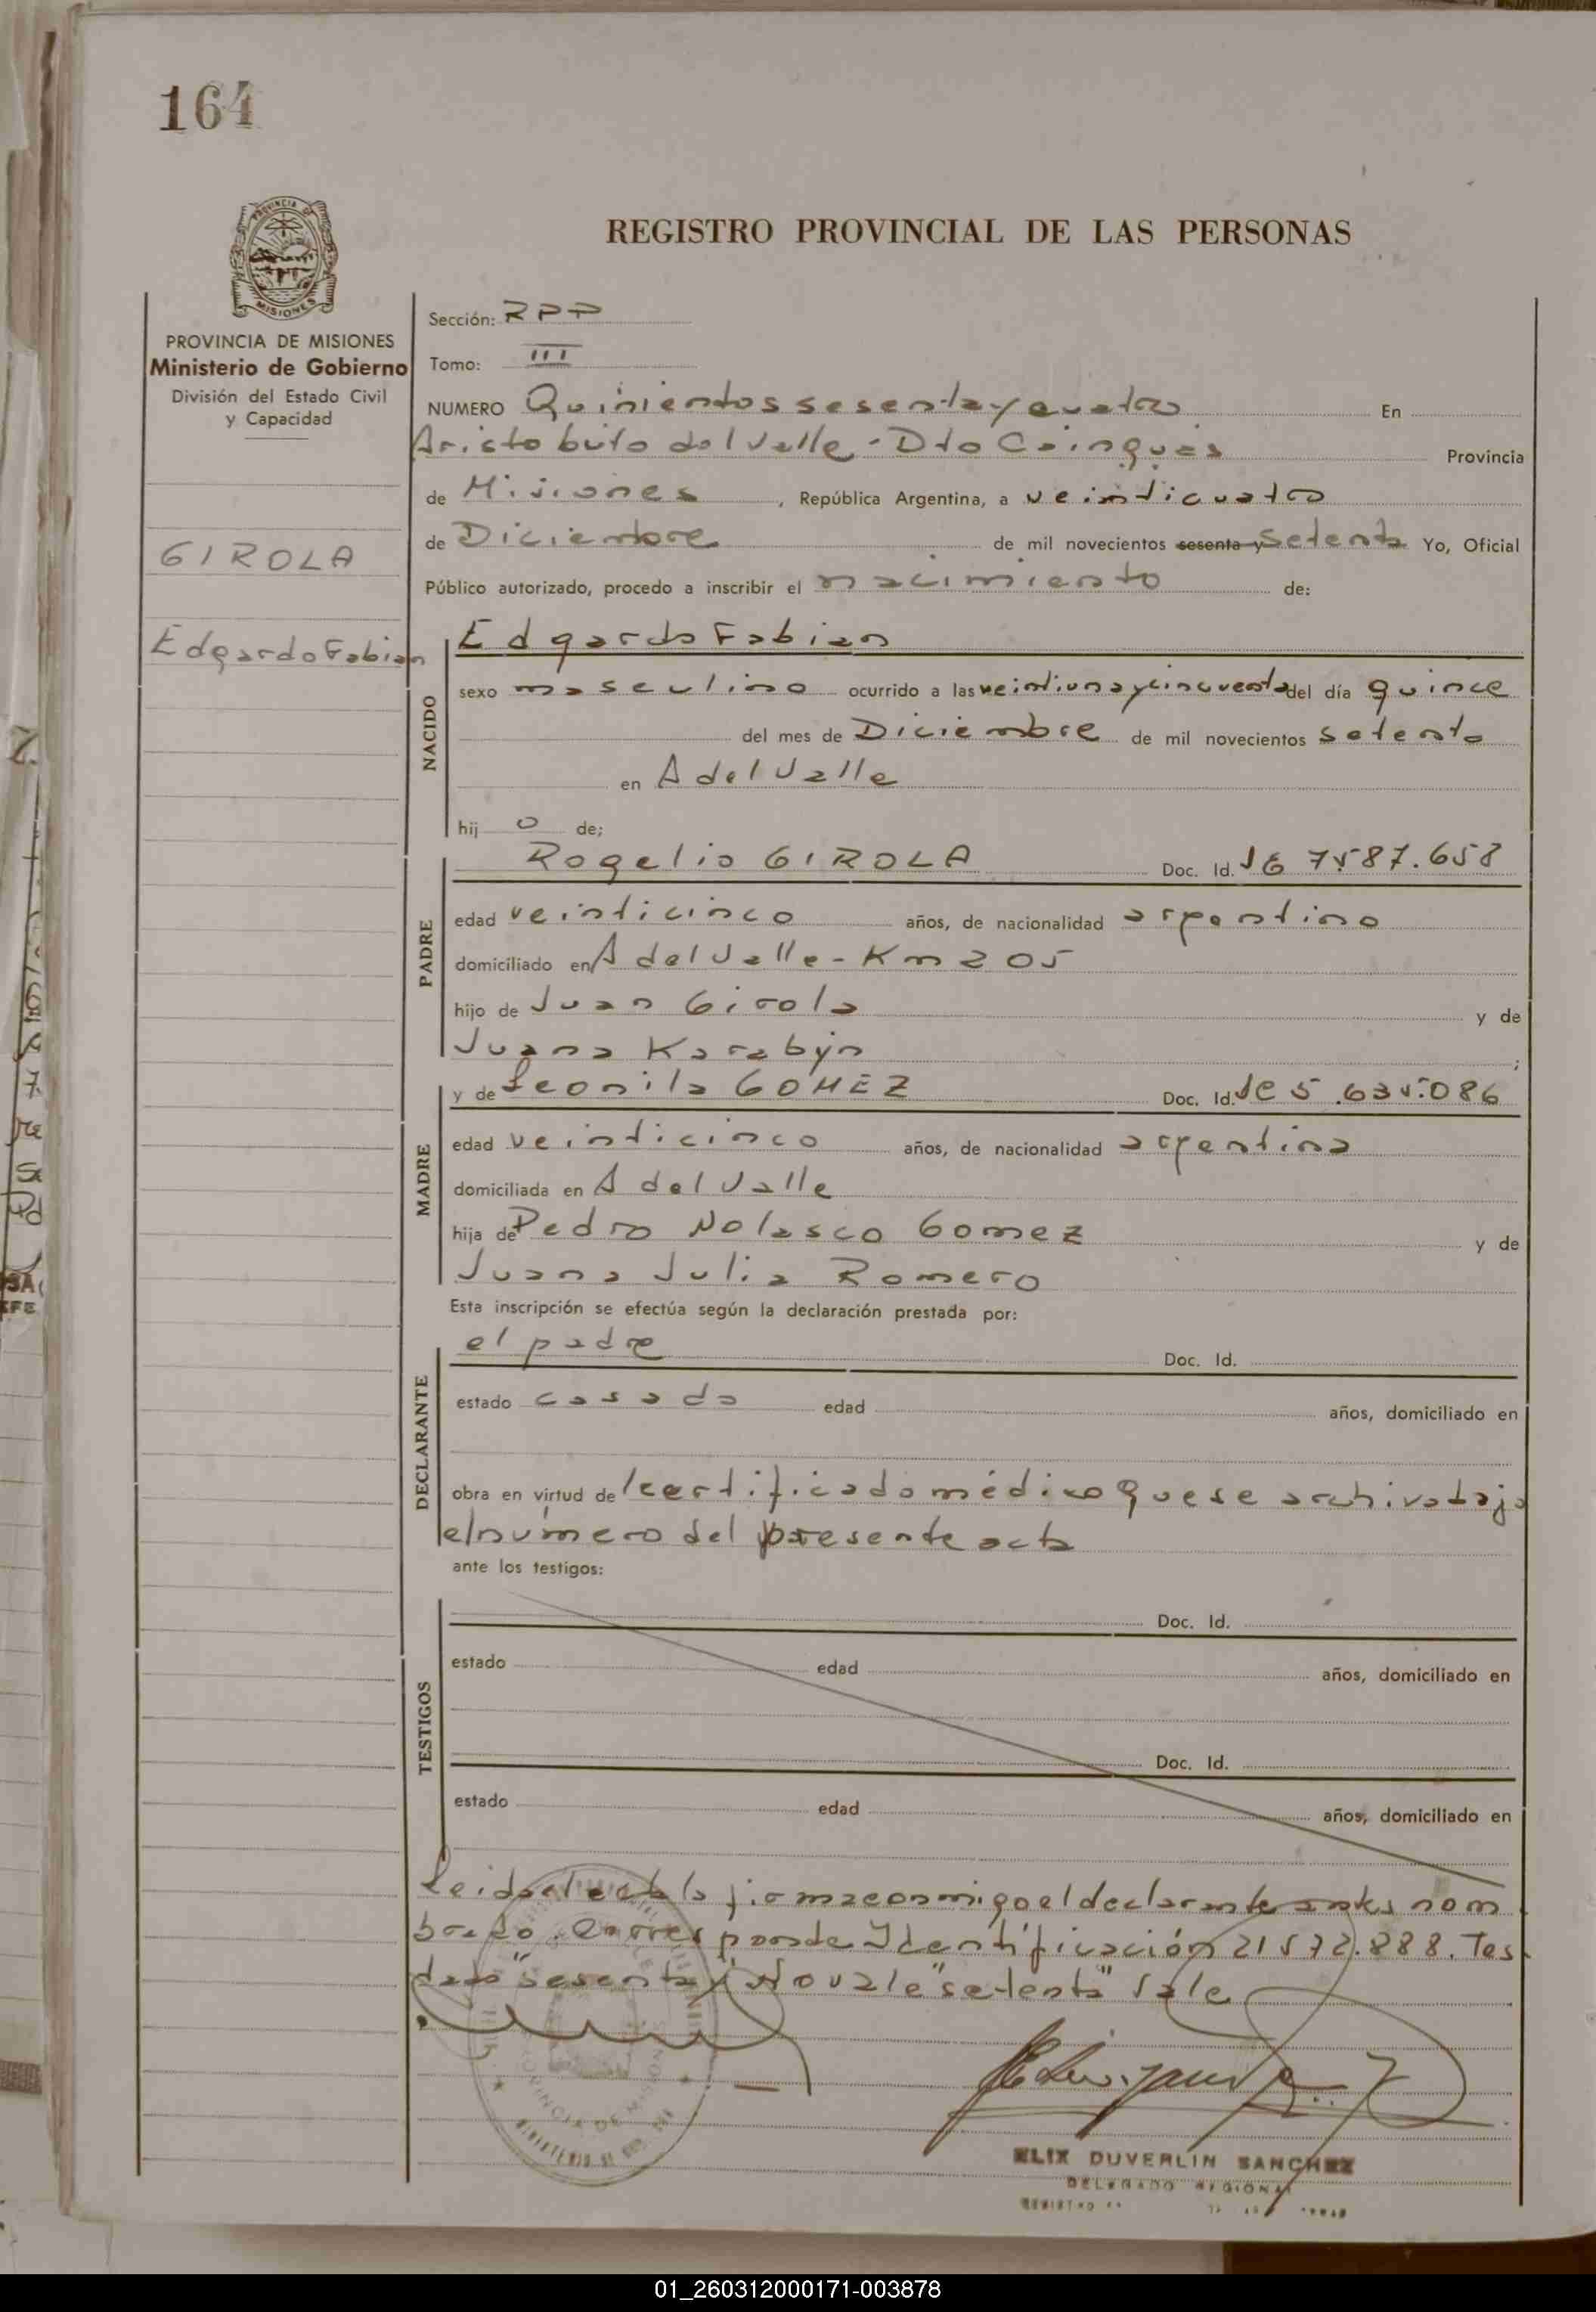 164
PROVINCIA DE
MISIONES
PROVINCIA DE MISIONES
Ministerio de Gobierno
División del Estado Civil
y Capacidad
GIROLA
Edgardo Fabian
REGISTRO PROVINCIAL DE LAS PERSONAS
Sección: RPP
Tomo: III
NUMERO Quinientos sesenta y cuatro En
Aristobulo del Valle - Dto Cainguas Provincia
de Misiones, República Argentina, a veinticuatro
de Diciembre de mil novecientos sesenta y setenta Yo, Oficial
Público autorizado, procedo a inscribir el nacimiento de:
NACIDO
Edgardo Fabian
sexo masculino ocurrido a las veintiuna y cincuenta del día quince
del mes de Diciembre de mil novecientos setenta
en A del Valle
hij o de;
PADRE
Rogelio GIROLA Doc. Id. 7.587.658
edad veinticinco años, de nacionalidad argentino
domiciliado en A del Valle - Km 205
hijo de Juan Girola y de
Juana Karabyn ;
MADRE
y de Leonila GOMEZ Doc. Id. 5.635.086
edad veinticinco años, de nacionalidad argentina
domiciliada en A del Valle
hija de Pedro Nolasco Gomez y de
Juana Julia Romero
Esta inscripción se efectúa según la declaración prestada por:
DECLARANTE
el padre Doc. Id.
estado casado edad años, domiciliado en
obra en virtud del certificado médico que se archiva bajo
el número del presente acta
ante los testigos:
TESTIGOS
Doc. Id.
estado edad años, domiciliado en
Doc. Id.
estado edad años, domiciliado en
Leida el acta la firma conmigo el declarante antes nom
brado. Corresponde Identificación 21572.888. Tes
tado "sesenta y" No vale "setenta" Vale
PROVINCIA DE MISIONES
ELIX DUVERLIN SANCHEZ
DELEGADO REGIONAL
01_260312000171-003878